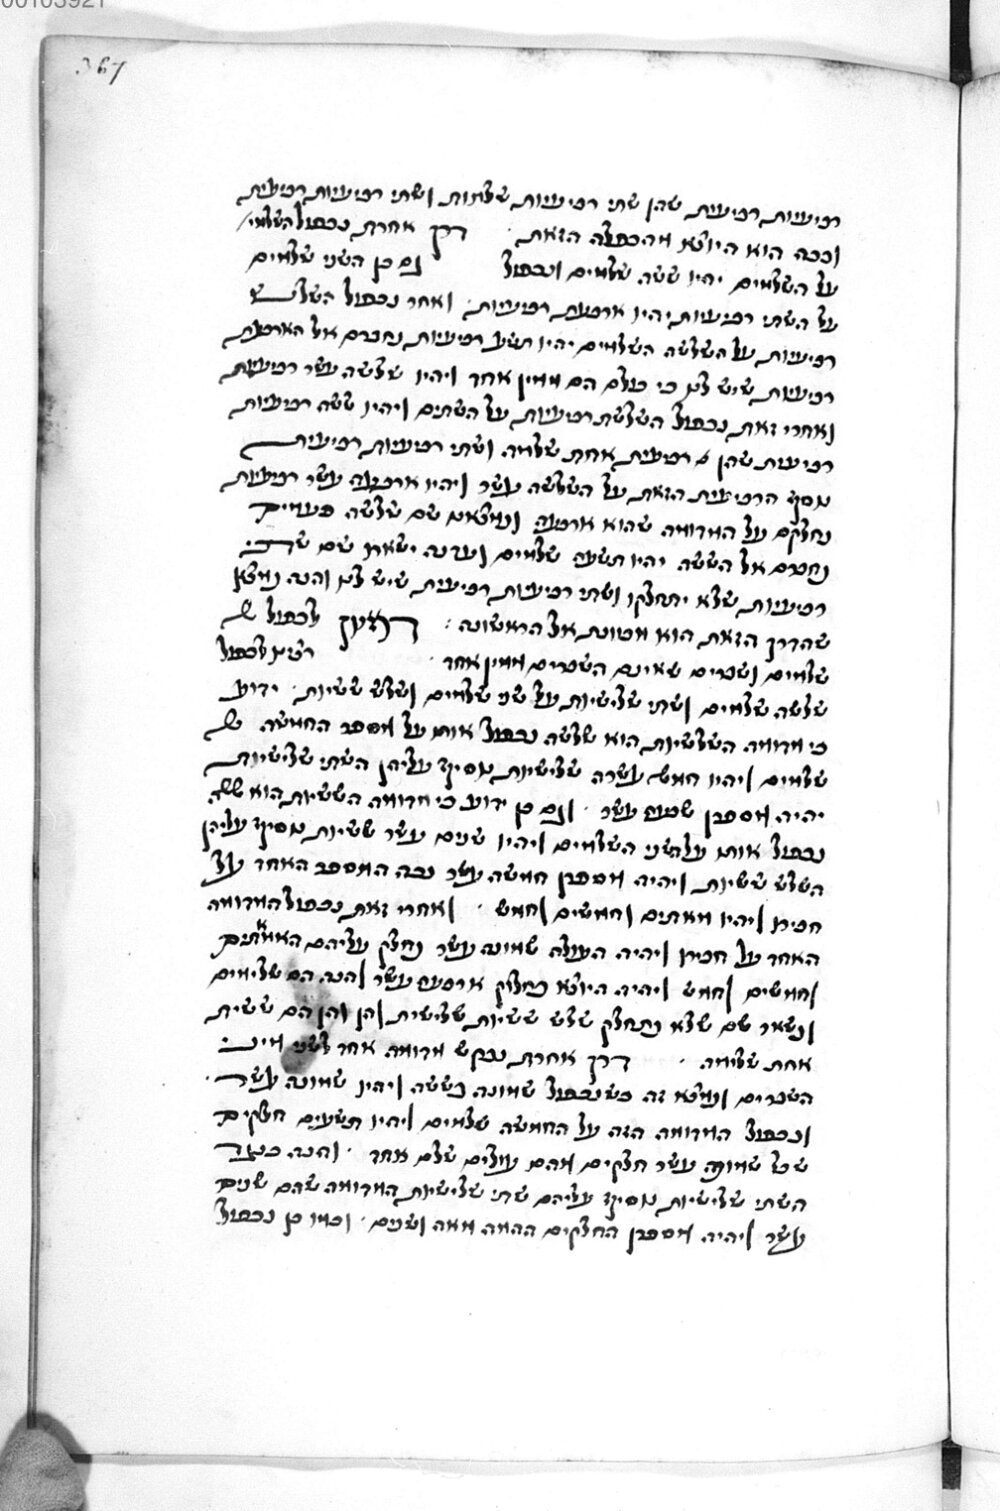 367
רביעיות רביעית שהן שתי רביעיות שלמות ושתי רביעיות רביעית
וככה הוא היוצא מהכפלה הזאת · דרך אחרת נכפול השלמי׳
על השלמים יהיו ששה שלמים ונכפול גם כן השני שלמים
על השתי רביעיות יהיו ארבעת רביעיות · ואחר נכפול השלש
רביעיות על השלשה השלמים יהיו תשע רביעיות נחברם אל הארבעה
רביעיות שיש לנו כי כולם הם ממין אחד ויהיו שלשה עשר רביעיות
ואחרי זאת נכפול השלשת רביעיות על השתים ויהיו ששה רביעיות
רביעית שהן רביעית אחת שלמה ושתי רביעיות רביעית
נוסיף הרביעית הזאת על השלשה עשר ויהיו ארבעה עשר רביעיות
נחלקם על המדומה שהוא ארבעה ונמצאם שם שלשה פעמים
נחברם אל הששה יהיו תשעה שלמים ועדנה ישארו שם שתי
רביעיות שלא יתחלקו ושתי רביעיות רביעית שיש לנו והנה נמצא
שהדרך הזאת הוא מכוונת אל הראשונה : לכפול
שלמים ושברים שאינם השברים ממין אחד · רצינו לכפול
שלשה שלמים ושתי שלישיות על שני שלמים ושלש ששיות · ידוע
כי מדומה השלישיות הוא שלשה נכפול אותו על מספר החמשה
שלמים ויהיו חמש עשרה שלישיות נוסיף עליהן השתי שלישיות
יהיה מספרן שבעה עשר · וגם כן ידוע כי מדומה הששיות הוא ששה
נכפול אותו על השני השלמים ויהיו שנים עשר ששיות נוסיף עליהן
השלש ששיות ויהיה מספרן חמשה עשר נכה המספר האחד על
חבירו ויהיו מאתים וחמשים וחמש · ואחרי זאת נכפול המדומה
האחד על חבירו ויהיה העולה שמונה עשר נחלק עליהם המאתים
וחמשים וחמש ויהיה היוצא בחלוק ארבעה עשר והנה הם שלימים
ונשאר שם שלא נתחלק שלש ששיות שלישית והן הם ששית
אחת שלימה · דרך אחרת נבקש מדומה אחד לשני מיני
השברים ונמצא זה כשנכפול שמונה בששה ויהיו שמונה עשר ·
ונכפול המדומה הזה על החמשה שלמים ויהיו תשעים חלקים
שכל שמונה עשר חלקים מהם עולים שלם אחד · והנה כנגד
השתי שלישיות נוסיף עליהם שתי שלישיות המדומה שהם שנים
עשר ויהיה מספרן החלקים ההמה מאה ושנים · וכמו כן נכפול